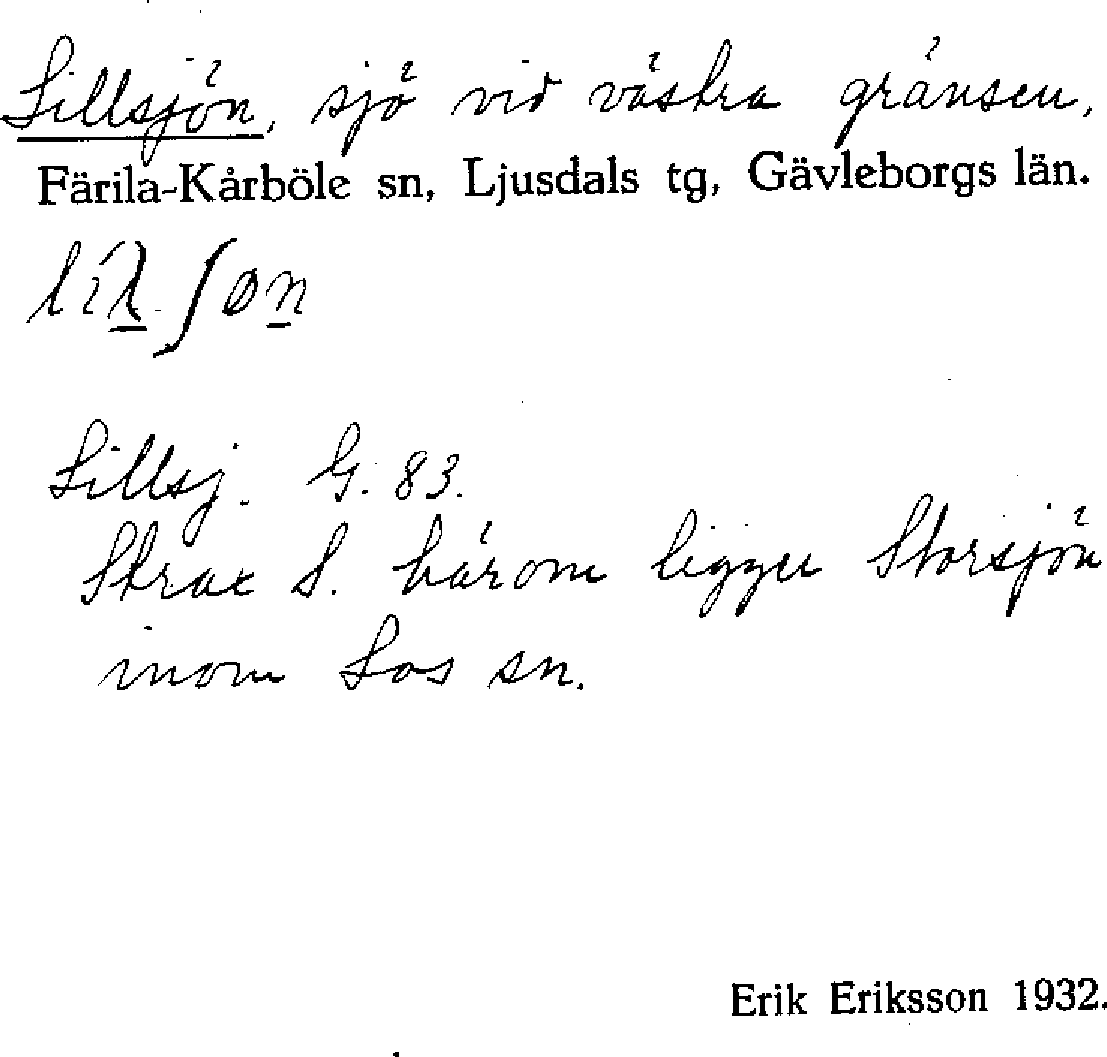 Lillsjön, sjö vid västra gränsen,
Färila-Kårböle sn, Ljusdals tg, Gävleborgs län.
Lillsj. G. 83.
Strax S. härom ligger Storsjön
inom Los sn.
Erik Eriksson 1932.